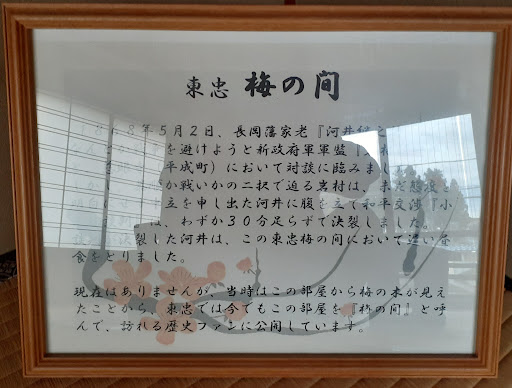 東忠 梅の間
8年5月2日、長岡藩家老『河井
を避けようと新政府軍軍監『
平成町)において対談に臨みまし
か戦いかの二択で迫る岩村は、
立を申し出た河井に腹を立て和平交渉『小
は、わずか30分足らずで決裂しました。
裂した河井は、この東忠梅の間において遅い昼
食をとりました。
現在はありませんが、当時はこの部屋から梅の木が見え
たことから、東忠では今でもこの部屋を『梅の間』と呼
んで、訪れる歴史ファンに公開しています。